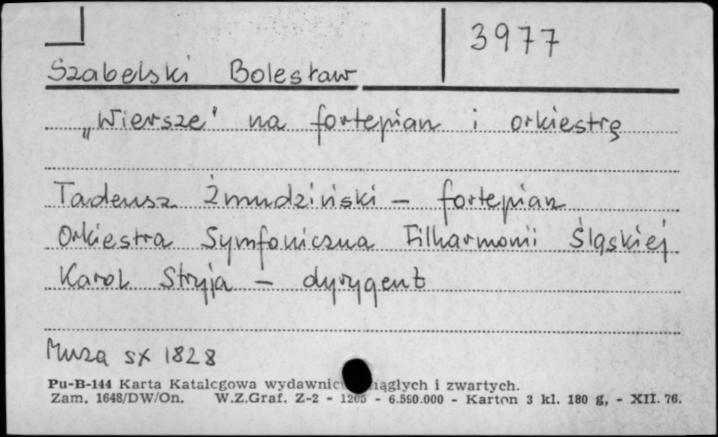 3977
Szabelski Bolesław
„Wiersze" na fortepian i orkiestrę
Tadeusz Żmudziński – fortepian
Orkiestra Symfoniczna Filharmonii Śląskiej
Karol Stryja – dyrygent
Muza sx 1828
Pu-B-144 Karta Katalcgowa wydawnic iągłych i zwartych.
Zam. 1648/DW/On. W.Z.Graf. Z-2 - 1205 - 6.550.000 - Karton 3 kl. 180 g, - XII. 76.